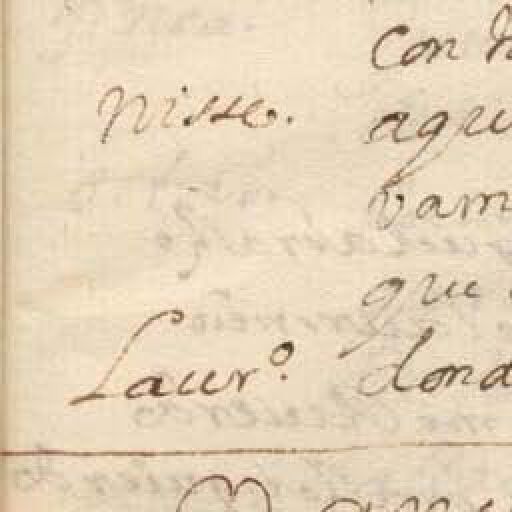 con
Nisse. aqu
vam
que
Laur.º dond